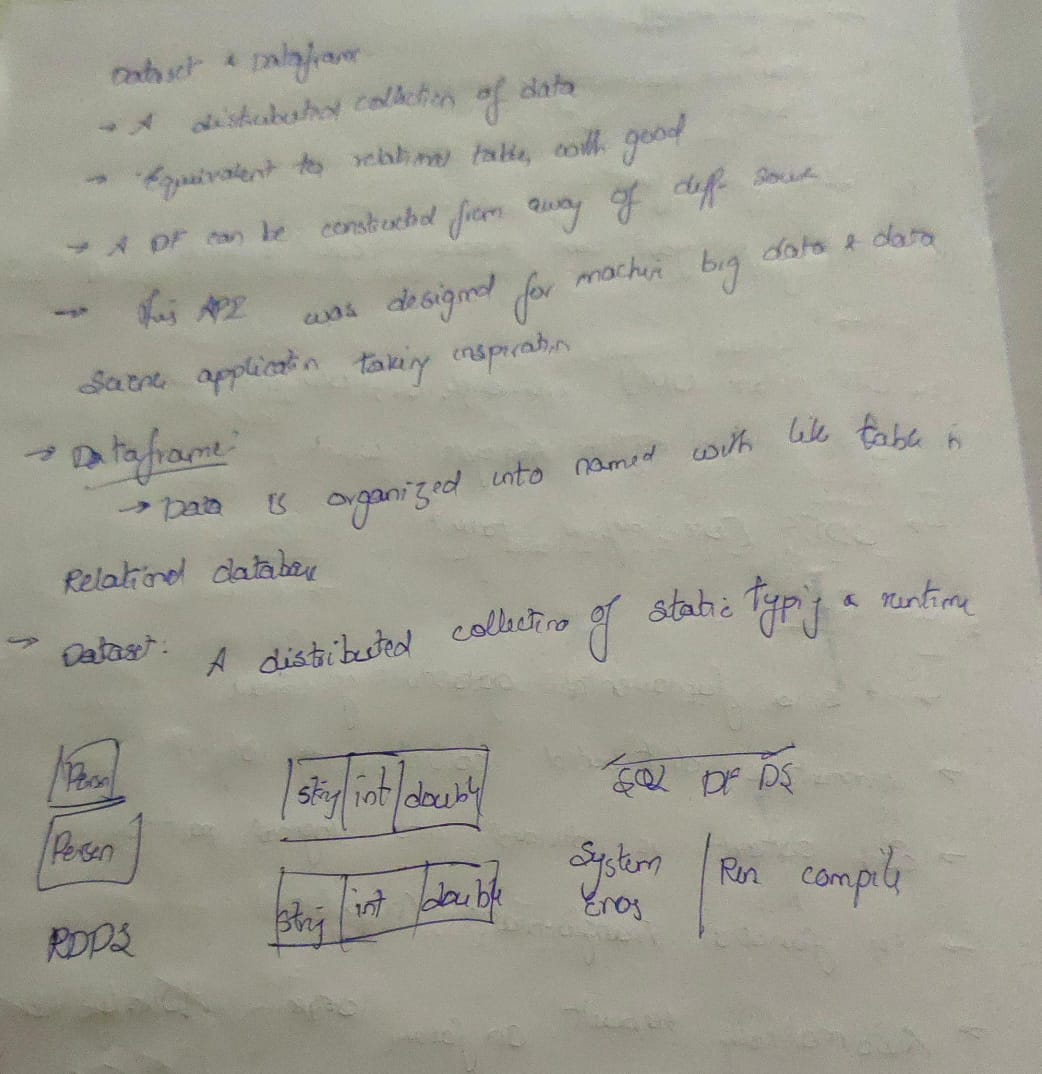 Dataset & Dataframe
→ A distributed collection of data
→ Equivalent to relational table, with good
→ A DF can be constructed from away of diff
→ This API was designed for machin big data & data
application taking inspiratin
→ Dataframe:
→ Data is organized into named with like table in
Relational
→ Dataset: A distributed collection of static typing a runtime
Person
string int double
SQL DF DS
Person
string int double
System Run compile
Errors
RDDS